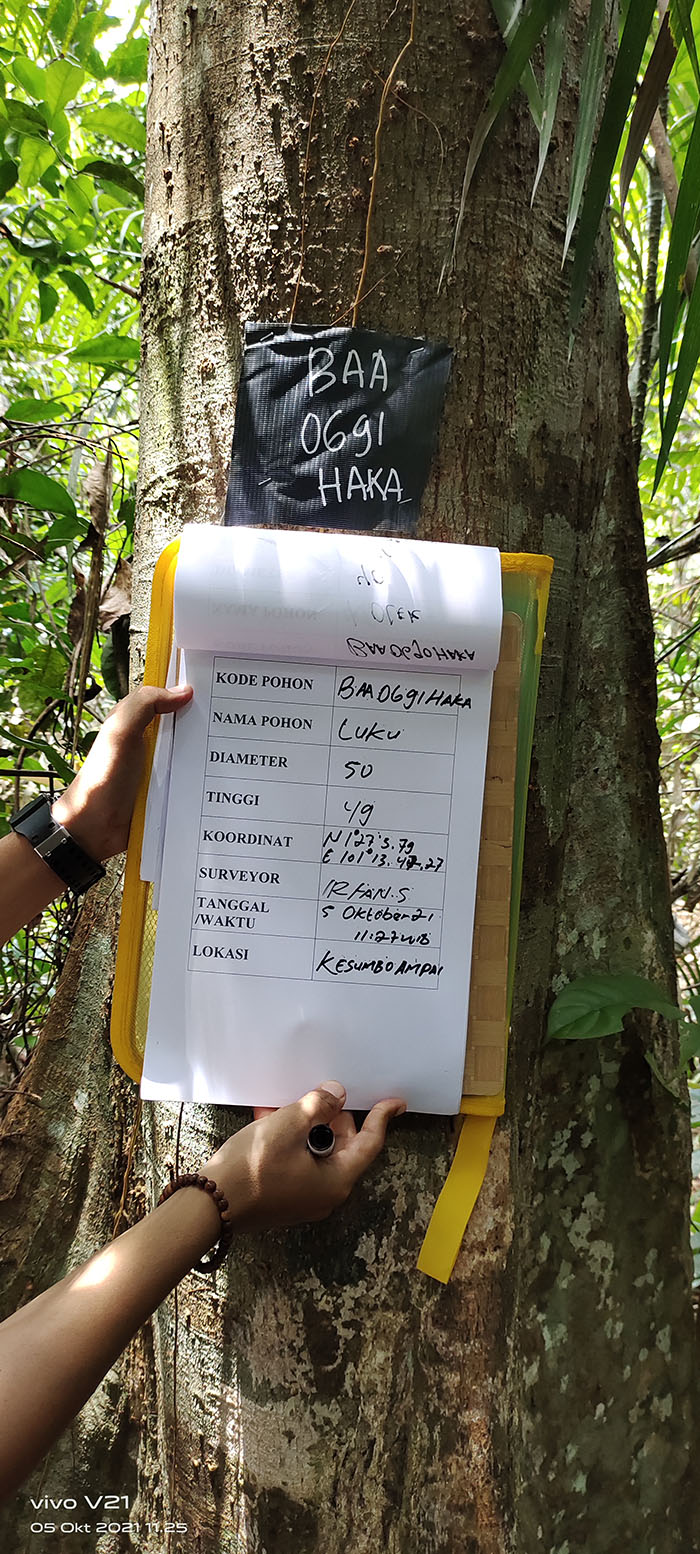 BAA
0691
HAKA
Olek
BAA0690HAKA
KODE POHON BAA0691HAKA
NAMA POHON Luku
DIAMETER 50
TINGGI 49
KOORDINAT N 1°27'5.79
E 101°13.47,27
SURVEYOR IRFAN.S
TANGGAL 5 Oktober 21
/WAKTU 11:27 WIB
LOKASI KESUMBO AMPAI
vivo V21
05 Okt 2021 11.25